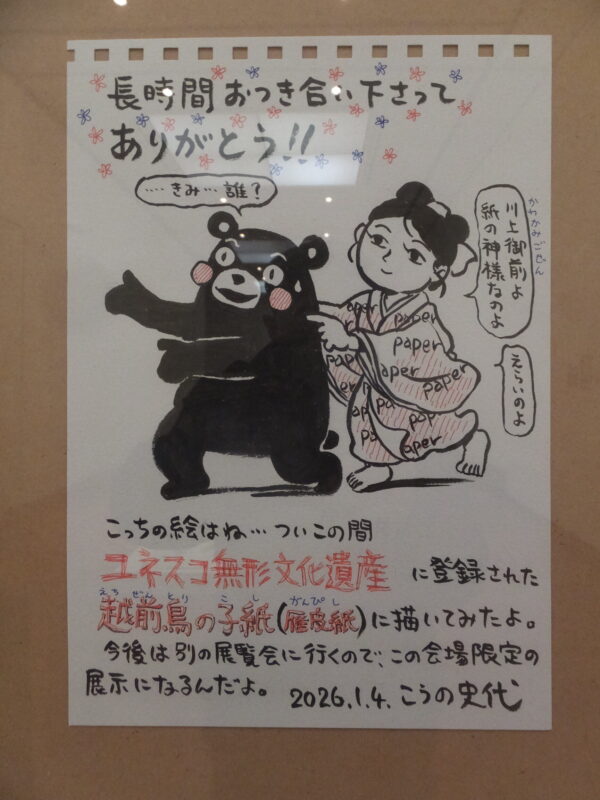 長時間おつき合い下さって
ありがとう!!
…きみ…誰?
川上御前よ
かわかみごぜん
紙の神様なのよ
えらいのよ
paper
paper
paper
paper
paper
aper
paper
pa
pap
paper
pa
aper
こっちの絵はね…ついこの間
ユネスコ無形文化遺産に登録された
えちぜんとりのこし がんぴし
越前鳥の子紙(雁皮紙)に描いてみたよ。
今後は別の展覧会に行くので、この会場限定の
展示になるんだよ。 2026.1.4. こうの史代